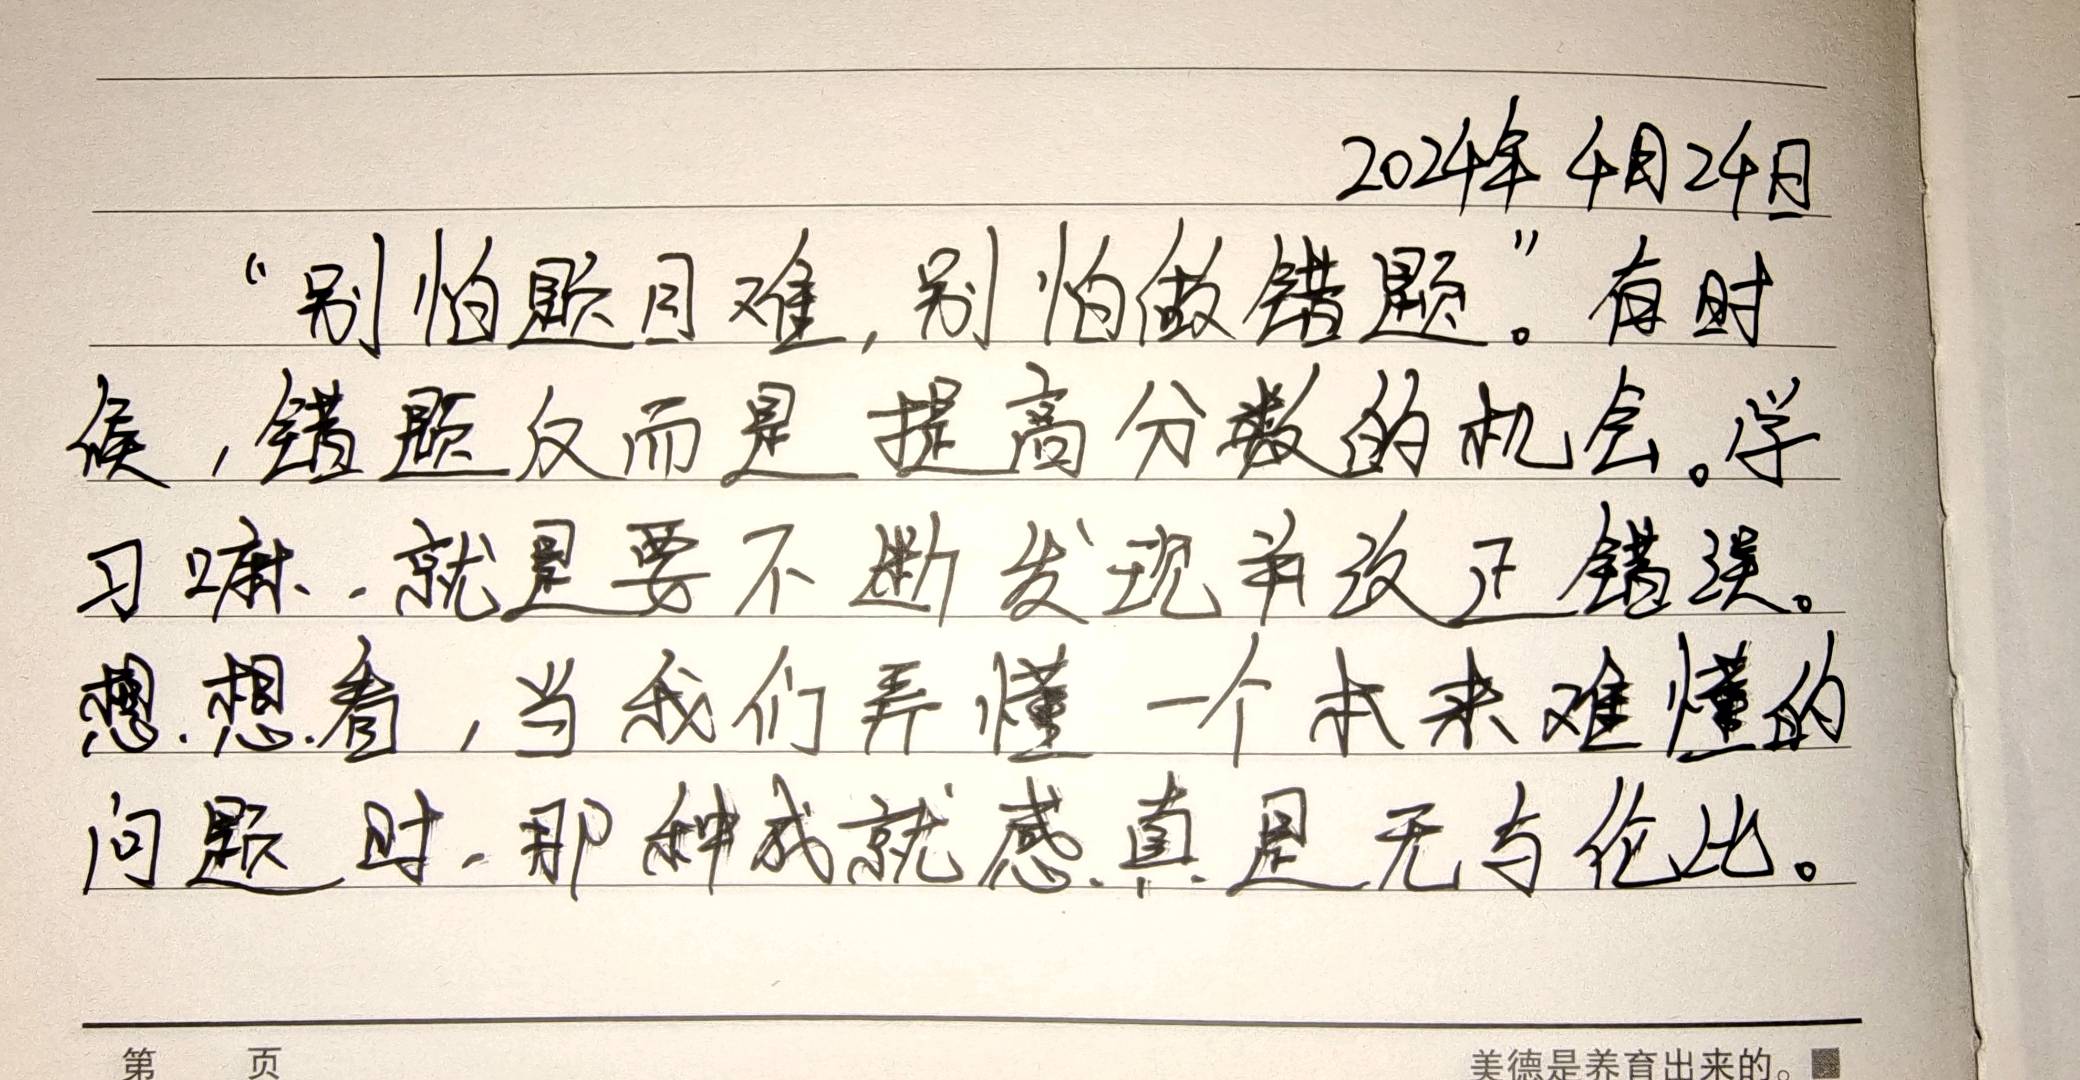 2024年4月24日
“别怕题目难,别怕做错题”。有时
候,错题反而是提高分数的机会。学
习嘛,就是要不断发现并改正错误。
想想看,当我们弄懂一个本来难懂的
问题时,那种成就感真是无与伦比。
第 页 美德是养育出来的。